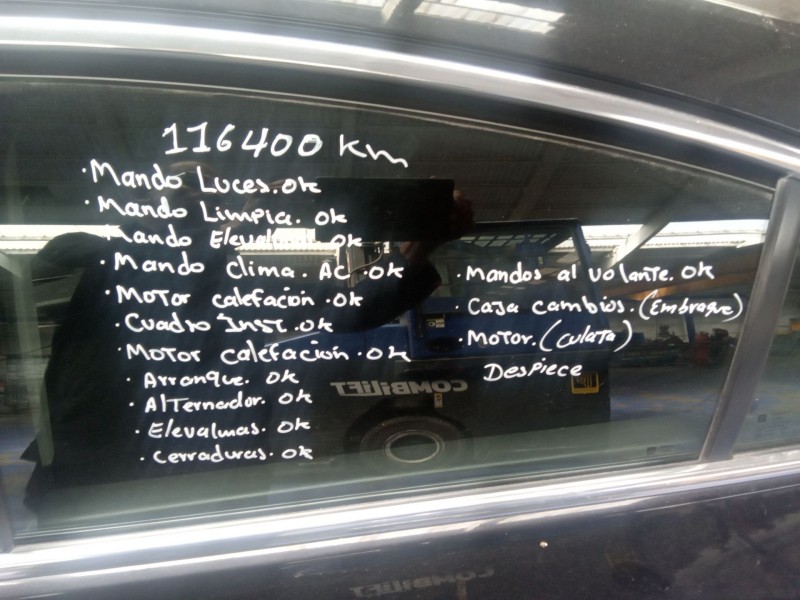 116400 km
· Mando Luces. ok
· Mando Limpia. ok
Mando ok
· Mando Clima. AC. ok
· Motor calefacion. ok
· Cuadro Inst. ok
· Motor calefacion. ok
· Arranque. ok
· Alternador. ok
· Elevalunas. ok
· Cerraduras. ok
· Mandos al volante. ok
· Caja cambios. (Embrague)
· Motor. (culata)
Despiece
COMBILIFT
COMBILIFT